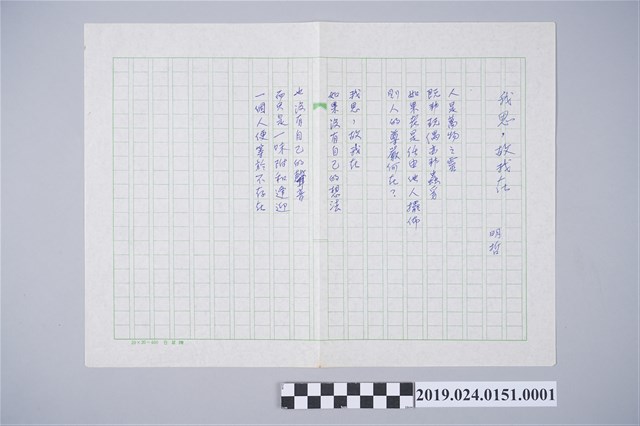 我思，故我在
明哲
人是萬物之靈
既非玩偶亦非蟲豸
如果老是任由他人擺佈
則人的尊嚴何在？
我思，故我在
如果沒有自己的想法
也沒有自己的聲音
而只是一味附和逢迎
一個人便等於不存在
2019.024.0151.0001